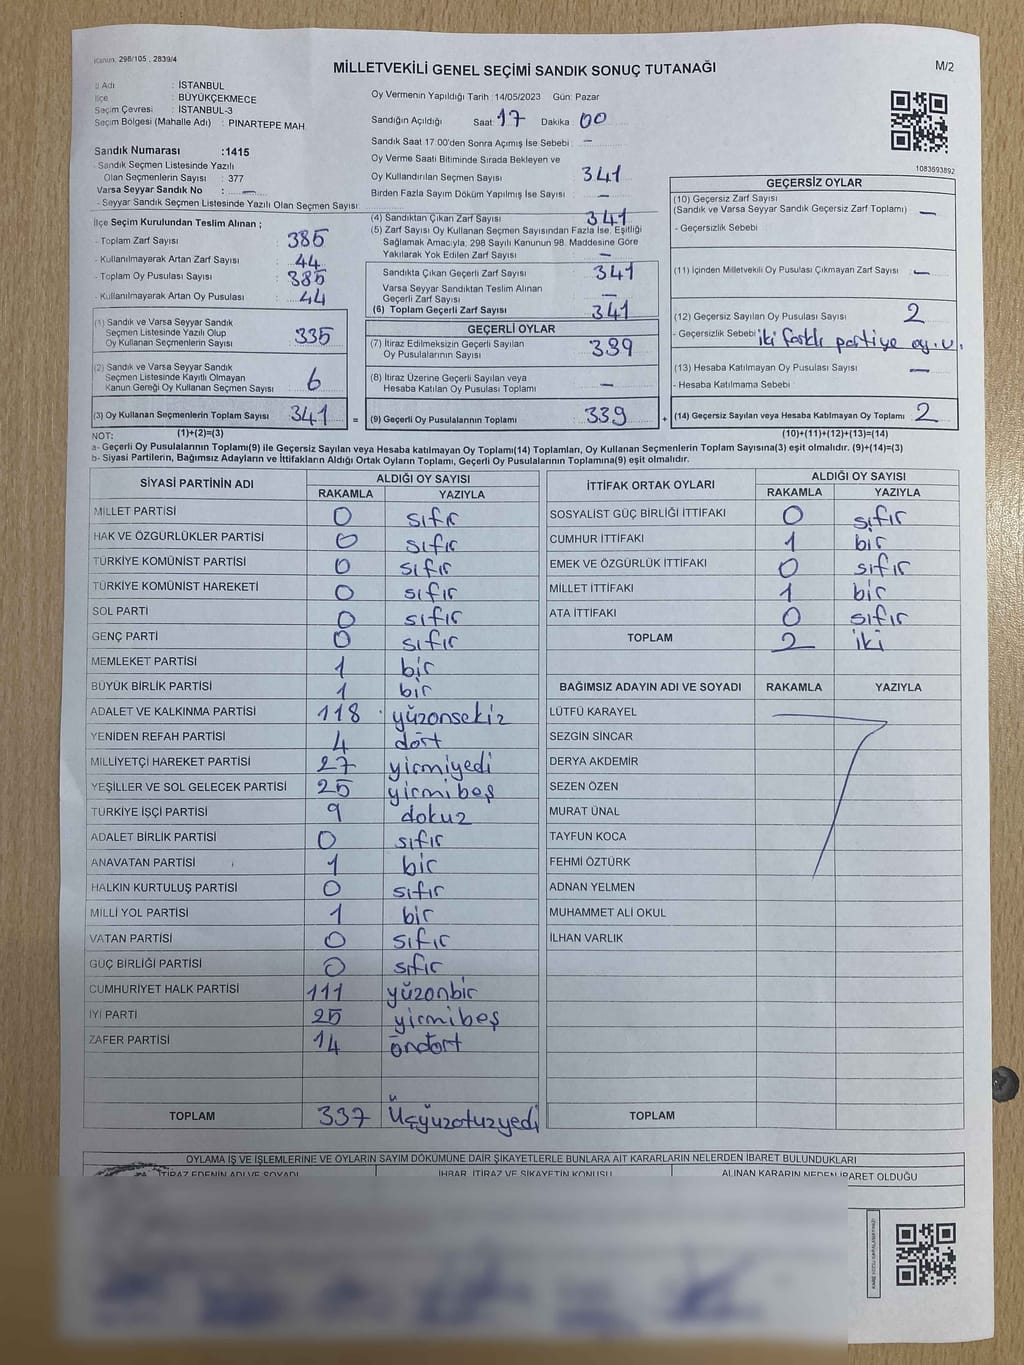 Kanun, 298/105 , 2839/4
MİLLETVEKİLİ GENEL SEÇİMİ SANDIK SONUÇ TUTANAĞI
M/2
İl Adı : İSTANBUL
İlçe : BÜYÜKÇEKMECE
Seçim Çevresi : İSTANBUL-3
Seçim Bölgesi (Mahalle Adı) : PINARTEPE MAH.
Sandık Numarası :1415
- Sandık Seçmen Listesinde Yazılı
Olan Seçmenlerin Sayısı : 377
Varsa Seyyar Sandık No : —
- Seyyar Sandık Seçmen Listesinde Yazılı Olan Seçmen Sayısı:
Oy Vermenin Yapıldığı Tarih :14/05/2023 Gün: Pazar
Sandığın Açıldığı Saat 17 Dakika 00
Sandık Saat 17:00'den Sonra Açımış İse Sebebi —
Oy Verme Saati Bitiminde Sırada Bekleyen ve
Oy Kullandırılan Seçmen Sayısı 341
Birden Fazla Sayım Döküm Yapılmış İse Sayısı —
1083693892
İlçe Seçim Kurulundan Teslim Alınan ;
- Toplam Zarf Sayısı : 385
- Kullanılmayarak Artan Zarf Sayısı : 44
- Toplam Oy Pusulası Sayısı : 385
- Kullanılmayarak Artan Oy Pusulası : 44
(1) Sandık ve Varsa Seyyar Sandık
Seçmen Listesinde Yazılı Olup
Oy Kullanan Seçmenlerin Sayısı 335
(2) Sandık ve Varsa Seyyar Sandık
Seçmen Listesinde Kayıtlı Olmayan
Kanun Gereği Oy Kullanan Seçmen Sayısı 6
(3) Oy Kullanan Seçmenlerin Toplam Sayısı 341 =
(1)+(2)=(3)
(4) Sandıktan Çıkan Zarf Sayısı 341
(5) Zarf Sayısı Oy Kullanan Seçmen Sayısından Fazla İse, Eşitliği
Sağlamak Amacıyla, 298 Sayılı Kanunun 98. Maddesine Göre
Yakılarak Yok Edilen Zarf Sayısı —
Sandıkta Çıkan Geçerli Zarf Sayısı 341
Varsa Seyyar Sandıktan Teslim Alınan
Geçerli Zarf Sayısı —
(6) Toplam Geçerli Zarf Sayısı 341
GEÇERLİ OYLAR
(7) İtiraz Edilmeksizin Geçerli Sayılan
Oy Pusulalarının Sayısı 339
(8) İtiraz Üzerine Geçerli Sayılan veya
Hesaba Katılan Oy Pusulası Toplamı —
(9) Geçerli Oy Pusulalarının Toplamı 339 +
GEÇERSİZ OYLAR
(10) Geçersiz Zarf Sayısı
(Sandık ve Varsa Seyyar Sandık Geçersiz Zarf Toplamı) —
- Geçersizlik Sebebi
(11) İçinden Milletvekili Oy Pusulası Çıkmayan Zarf Sayısı —
(12) Geçersiz Sayılan Oy Pusulası Sayısı 2
- Geçersizlik Sebebi iki farklı partiye oy.v.
(13) Hesaba Katılmayan Oy Pusulası Sayısı —
- Hesaba Katılmama Sebebi
(14) Geçersiz Sayılan veya Hesaba Katılmayan Oy Toplamı 2
(10)+(11)+(12)+(13)=(14)
NOT:
a- Geçerli Oy Pusulalarının Toplamı(9) ile Geçersiz Sayılan veya Hesaba katılmayan Oy Toplamı(14) Toplamları, Oy Kullanan Seçmenlerin Toplam Sayısına(3) eşit olmalıdır. (9)+(14)=(3)
b- Siyasi Partilerin, Bağımsız Adayların ve İttifakların Aldığı Ortak Oyların Toplamı, Geçerli Oy Pusulalarının Toplamına(9) eşit olmalıdır.
SİYASİ PARTİNİN ADI ALDIĞI OY SAYISI
RAKAMLA YAZIYLA
MİLLET PARTİSİ 0 sıfır
HAK VE ÖZGÜRLÜKLER PARTİSİ 0 sıfır
TÜRKİYE KOMÜNİST PARTİSİ 0 sıfır
TÜRKİYE KOMÜNİST HAREKETİ 0 sıfır
SOL PARTİ 0 sıfır
GENÇ PARTİ 0 sıfır
MEMLEKET PARTİSİ 1 bir
BÜYÜK BİRLİK PARTİSİ 1 bir
ADALET VE KALKINMA PARTİSİ 118 yüzonsekiz
YENİDEN REFAH PARTİSİ 4 dört
MİLLİYETÇİ HAREKET PARTİSİ 27 yirmiyedi
YEŞİLLER VE SOL GELECEK PARTİSİ 25 yirmibeş
TÜRKİYE İŞÇİ PARTİSİ 9 dokuz
ADALET BİRLİK PARTİSİ 0 sıfır
ANAVATAN PARTİSİ 1 bir
HALKIN KURTULUŞ PARTİSİ 0 sıfır
MİLLİ YOL PARTİSİ 1 bir
VATAN PARTİSİ 0 sıfır
GÜÇ BİRLİĞİ PARTİSİ 0 sıfır
CUMHURİYET HALK PARTİSİ 111 yüzonbir
İYİ PARTİ 25 yirmibeş
ZAFER PARTİSİ 14 öndört
TOPLAM 337 Üçyüzotuzyedi
İTTİFAK ORTAK OYLARI ALDIĞI OY SAYISI
RAKAMLA YAZIYLA
SOSYALİST GÜÇ BİRLİĞİ İTTİFAKI 0 sıfır
CUMHUR İTTİFAKI 1 bir
EMEK VE ÖZGÜRLÜK İTTİFAKI 0 sıfır
MİLLET İTTİFAKI 1 bir
ATA İTTİFAKI 0 sıfır
TOPLAM 2 iki
BAĞIMSIZ ADAYIN ADI VE SOYADI RAKAMLA YAZIYLA
LÜTFÜ KARAYEL
SEZGİN SİNCAR
DERYA AKDEMİR
SEZEN ÖZEN
MURAT ÜNAL
TAYFUN KOCA
FEHMİ ÖZTÜRK
ADNAN YELMEN
MUHAMMET ALİ OKUL
İLHAN VARLIK
TOPLAM
OYLAMA İŞ VE İŞLEMLERİNE VE OYLARIN SAYIM DÖKÜMÜNE DAİR ŞİKAYETLERLE BUNLARA AİT KARARLARIN NELERDEN İBARET BULUNDUKLARI
İTİRAZ EDENİN ADI VE SOYADI İHBAR, İTİRAZ VE ŞİKAYETİN KONUSU ALINAN KARARIN NEDEN İBARET OLDUĞU